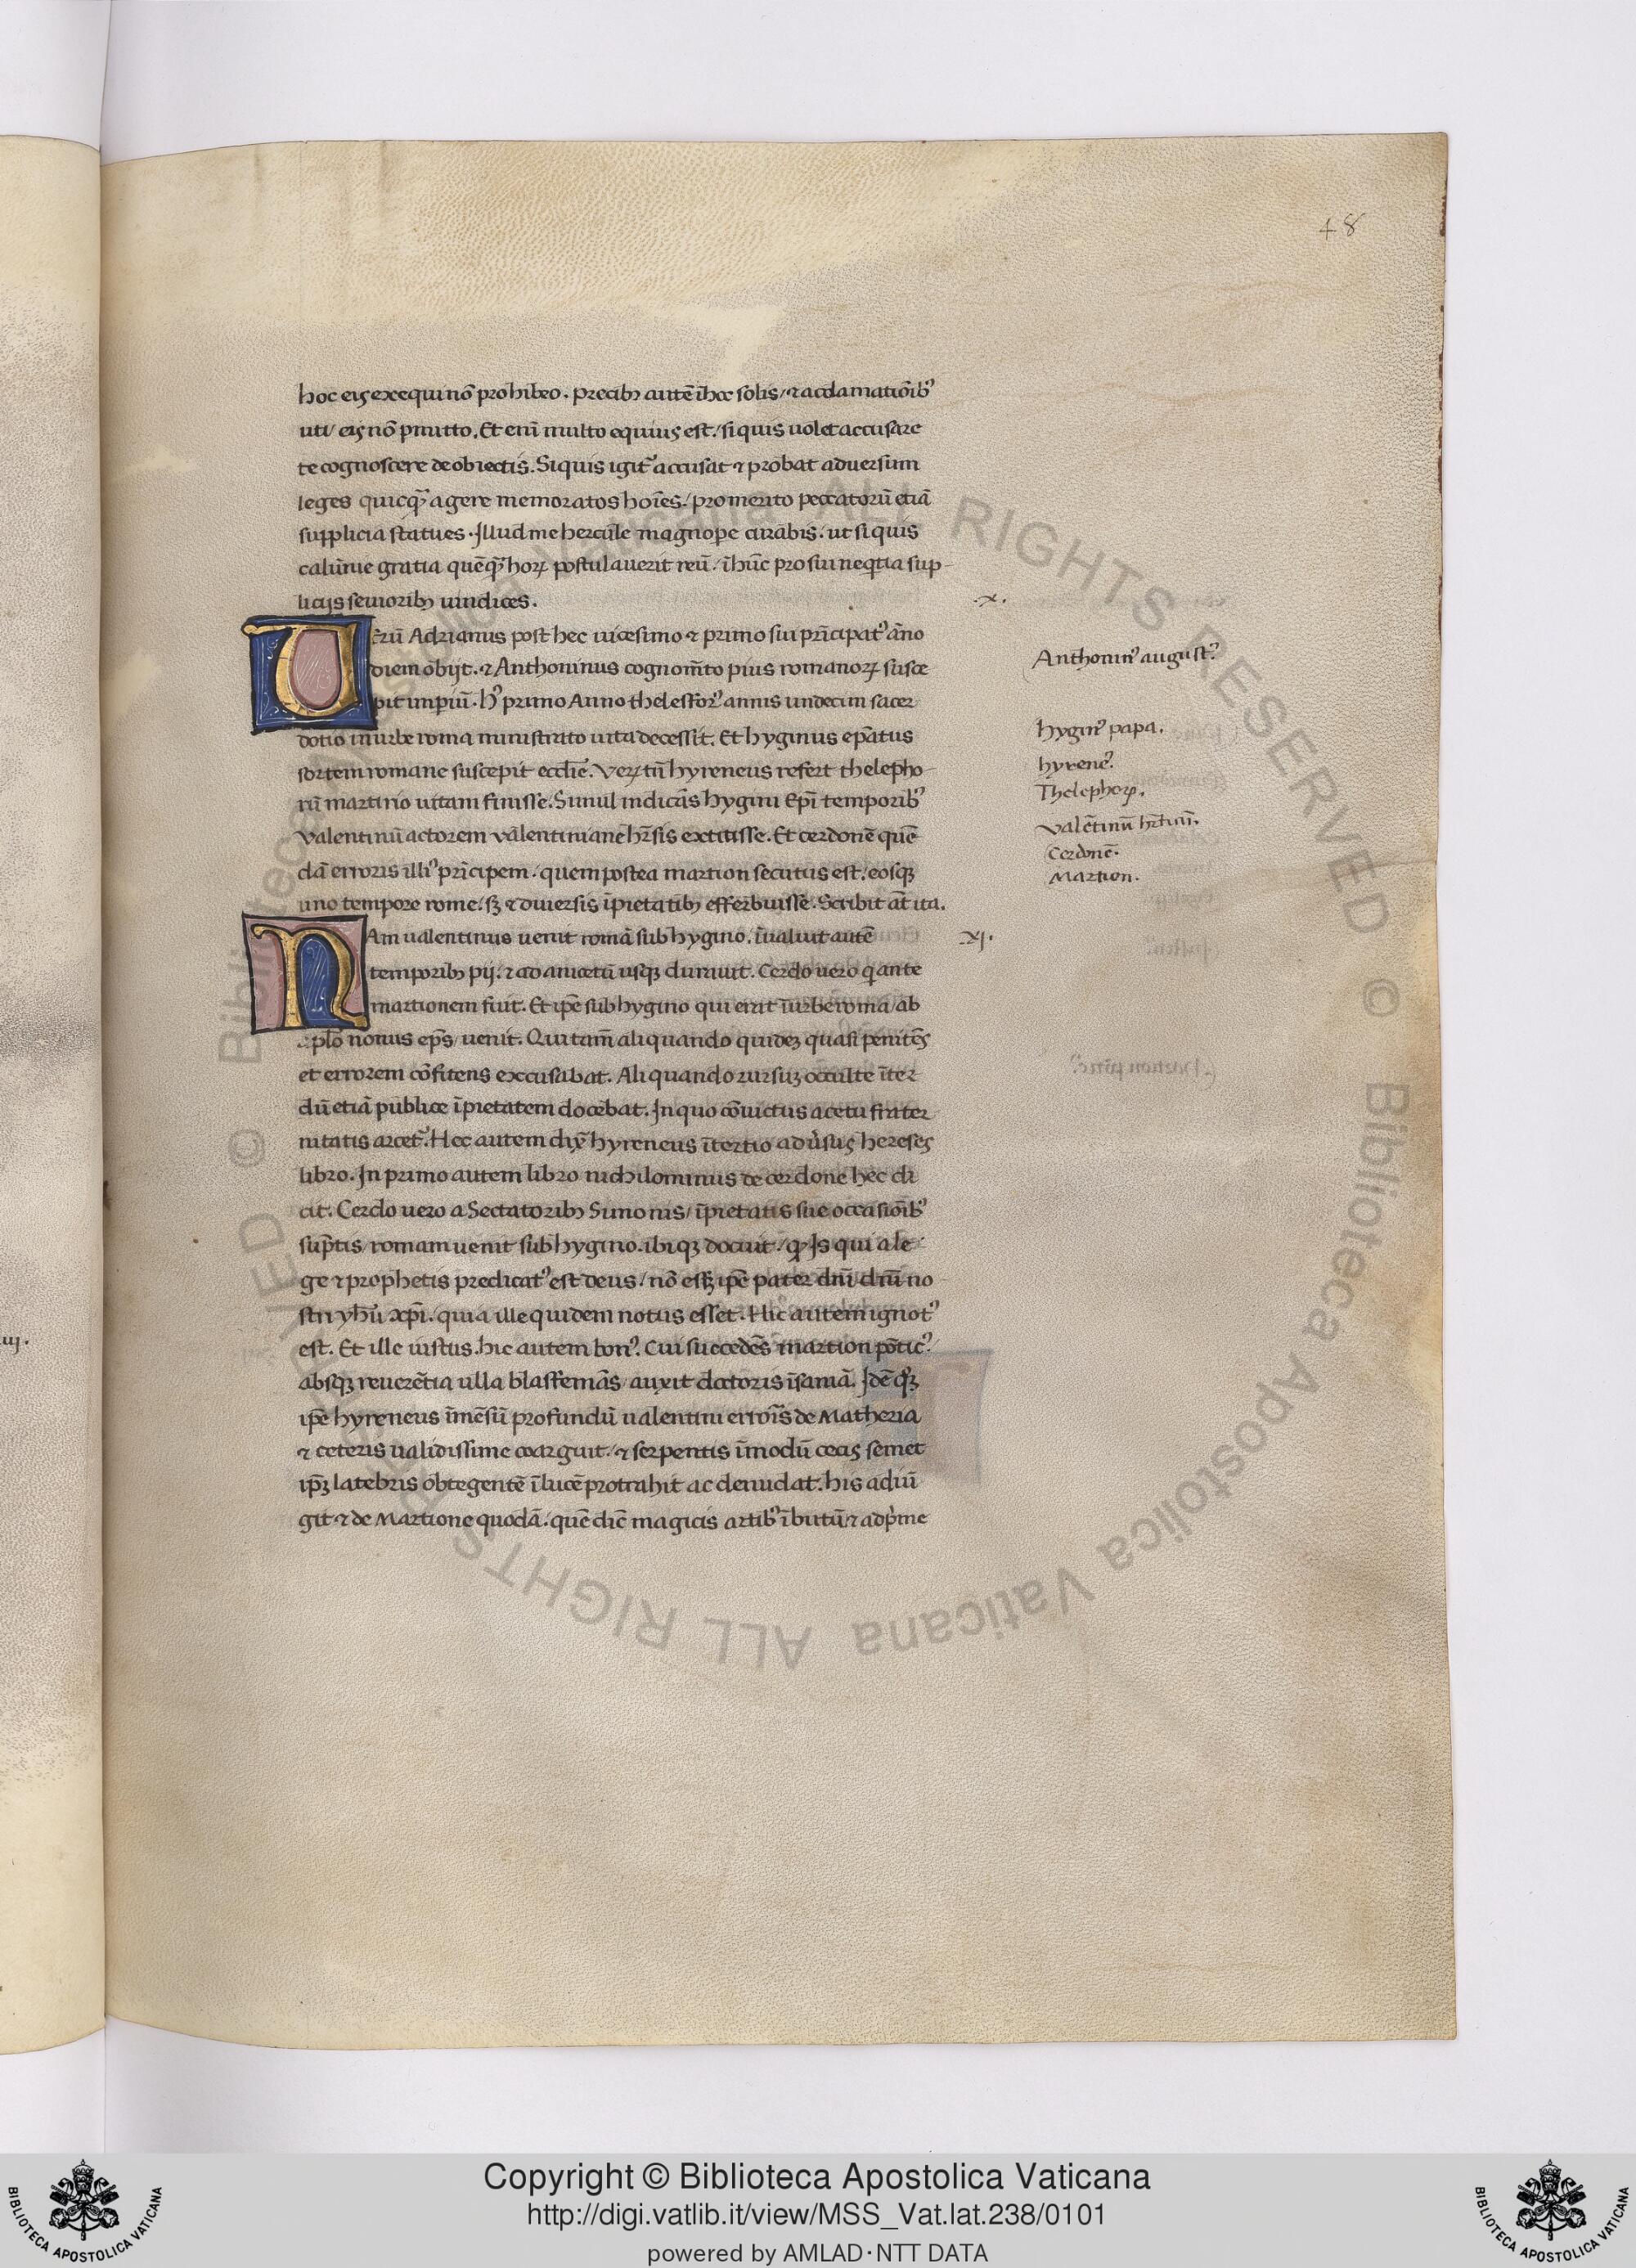 48
hoc eis exequi nō prohibeo. precibꝫ autē ī hoc solis / ⁊ acclamatiōibꝰ
uti / eis nō ꝑmitto. Et enī multo equius est. / si quis uolet accusare
te cognoscere de obiectis. Si quis igit᷑ accusat ⁊ probat aduersum
leges quicq̄ agere memoratos hoīes. / pro merito peccatorū etiā
supplicia statues. Illud me hercule magnope curabis. ut si quis
calūnie gratia quēq̄ horꝝ postulauerit reū. / ī hūc pro sui neq̇tia sup-
licijs seuioribꝫ uindices.
.x.
Uerū Adrianus post hec uicesimo ⁊ primo sui prīcipatꝰ āno
diem obijt. ⁊ Anthoninus cognom̄to pius romanoꝝ susce
Anthoninꝰ augustꝰ.
pit imꝑiū. hꝰ primo Anno thelesforꝰ annis undecim sacer
dotio in urbe roma ministrato uita decessit. Et hyginus ep̄atus
hyginꝰ papa.
sortem romane suscepit ecclīe. Veꝝ tn̄ hyreneus refert thelepho-
hyreneꝰ.
rū martirio uitam finisse. Simul indicās hygini Ep̄i temporibꝰ
Thelephoꝝ.
Valentinū actorem valentiniane hr̄sis extitisse. Et cerdonē quē
valētinū hr̄ticū.
dā erroris illiꝰ prīcipem. / quem postea martion secutus est. / eosqꝫ
Cerdonē.
Martion.
uno tempore rome. / sꝫ ⁊ diuersis īpietatibꝫ efferbuisse. Scribit āt ita.
NAm ualentinus uenit romā sub hygino. īualuit autē
.xj.
temporibꝫ pij. ⁊ ad anicetū usqꝫ durauit. Cerdo uero q̇ ante
martionem fuit. Et ip̄e sub hygino qui erat ī urbe roma / ab
apl̄o nonus ep̄s / uenit. Qui tam̄ aliquando quidēꝫ quasi penitēs
et errorem cōfitens excusabat. Aliquando rursuꝫ occulte īter
dū etiā publice īpietatem docebat. In quo cōuictus a cetu frater
nitatis arcet᷑. Hec autem dix̄ hyreneus ī tertio adu̇sus hereses
libro. In primo autem libro nichilominus de cerdone hec di
cit. Cerdo uero a Sectatoribꝫ Simonis / īpietatis sue occasiōibꝰ
sūptis / romam uenit sub hygino. ibiqꝫ docuit / ꝙ Is qui a le
ge ⁊ prophetis predicatꝰ est deus / nō esꝫ ip̄e pater dn̄i dn̄i no
stri yhū xp̄i. quia ille quidem notus esset. Hic autem ignotꝰ
est. Et ille iustus. hic autem bonꝰ. Cui succedēs martion pōticꝰ.
absqꝫ reuerētia ulla blasfemās / auxit doctoris īsaniā. Idē qꝫ
ip̄e hyreneus īmēsū profundū ualentini errōis de Matheria
⁊ ceteris ualidissime coarguit. / ⁊ serpentis ī modū cecis semet
ip̄ꝫ latebris obtegentē ī lucē protrahit ac denudat. his adiū
git ⁊ de Martione quodā. / quē dic̄ magicis artibꝰ ībutū ⁊ adp̍me
uij.
Copyright © Biblioteca Apostolica Vaticana
http://digi.vatlib.it/view/MSS_Vat.lat.238/0101
powered by AMLAD·NTT DATA
BIBLIOTECA APOSTOLICA VATICANA
BIBLIOTECA APOSTOLICA VATICANA
© Biblioteca Apostolica Vaticana ALL RIGHTS RESERVED © Biblioteca Apostolica Vaticana ALL RIGHTS RESERVED